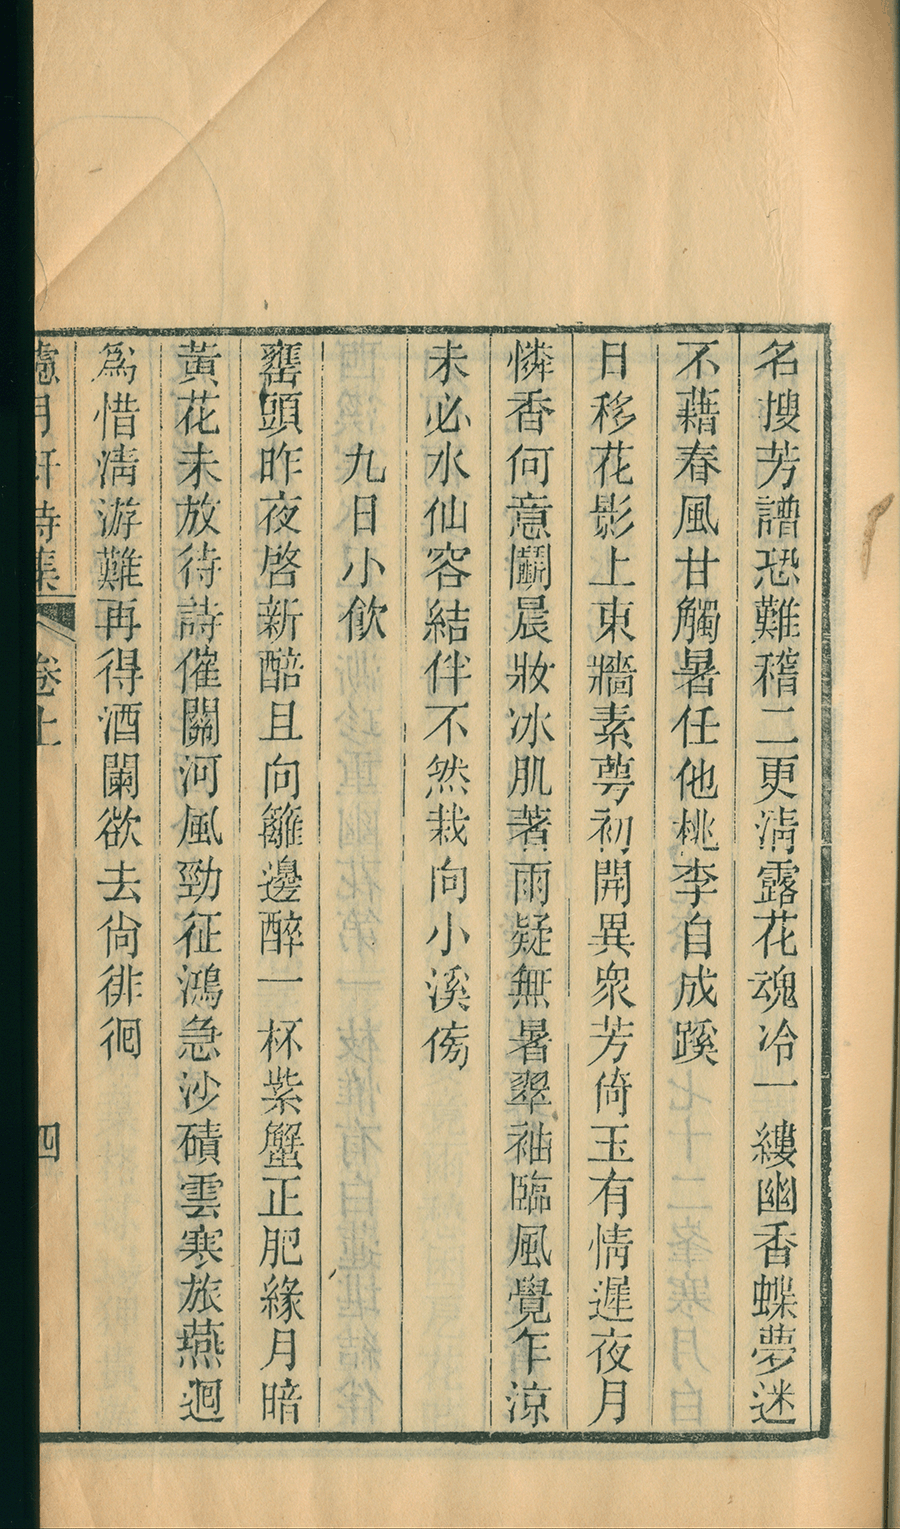 名搜芳譜恐難稽二更淸露花魂冷一縷幽香蝶夢迷
不藉春風甘觸暑任他桃李自成蹊
日移花影上東牆素萼初開異衆芳倚玉有情遲夜月
憐香何意鬭晨妝冰肌著雨疑無暑翠袖臨風覺乍涼
未必水仙容結伴不然栽向小溪傍
九日小飮
罋頭昨夜啓新醅且向籬邊醉一杯紫蟹正肥緣月暗
黃花未放待詩催關河風勁征鴻急沙磧雲寒旅燕迴
爲惜淸游難再得酒闌欲去尙徘徊
月軒詩集 卷上 四